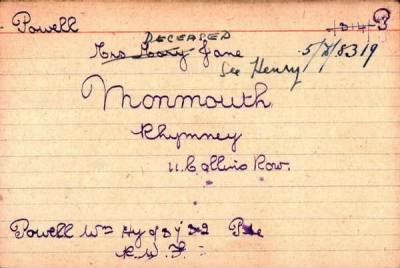 Powell
DECEASED
Mrs Mary Jane 5/8/8319
See Henry
Monmouth
Rhymney
11 Collins Row.
Powell Wm Hy Pte
R. W. F.